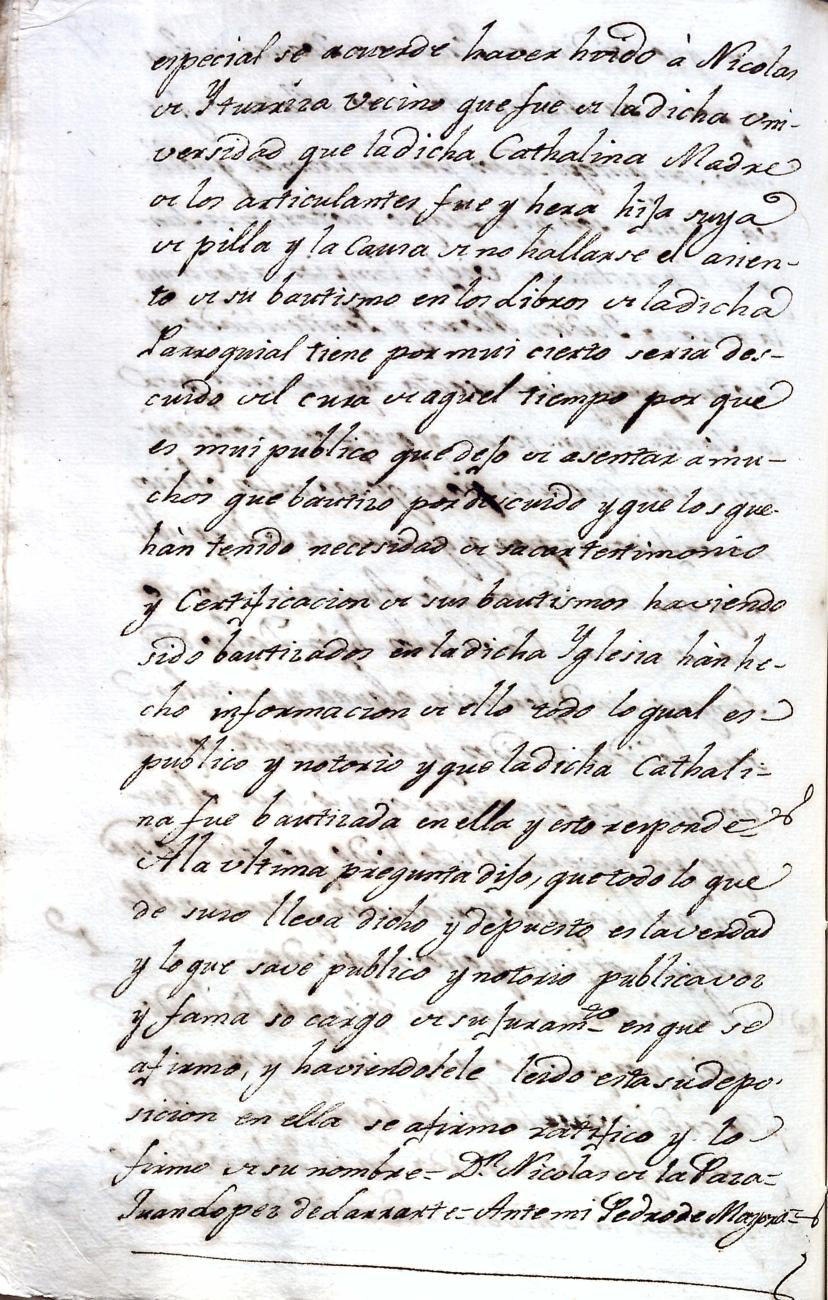 especial se acuerde haver hoido à Nicolas
de Yturriza Vecino que fue de la dicha vni-
versidad que la dicha Cathalina Madre
de los articulantes, fue y hera hija suya
de pilla y la Causa de no hallarse el asien-
to de su bautismo en los Libros de la dicha
Parroquial tiene por mui cierto seria des-
cuido del cura de aquel tiempo por que
es mui publico que dejo de asentar à mu-
chos que bautizo por descuido y que los que
hàn tenido necesidad de sacar testimonio
y Certificacion de sus bautismos haviendo
sido bautizados en la dicha Yglesia hàn he-
cho informacion de ello todo lo qual es
publico y notorio y que la dicha Cathali-
na fue bautizada en ella y esto responde
A la vltima pregunta dijo, que todo lo que
de suso lleva dicho y depuesto es la verdad
y lo que save publico y notorio publica voz
y fama so cargo de su Juram.to en que se
afirmo, y haviendosele leido esta su depo-
sicion en ella se afirmo ratifico y lo
firmo de su nombre = D.n Nicolas de la
Juan Lopez de Larrarte = Ante mi Pedro de